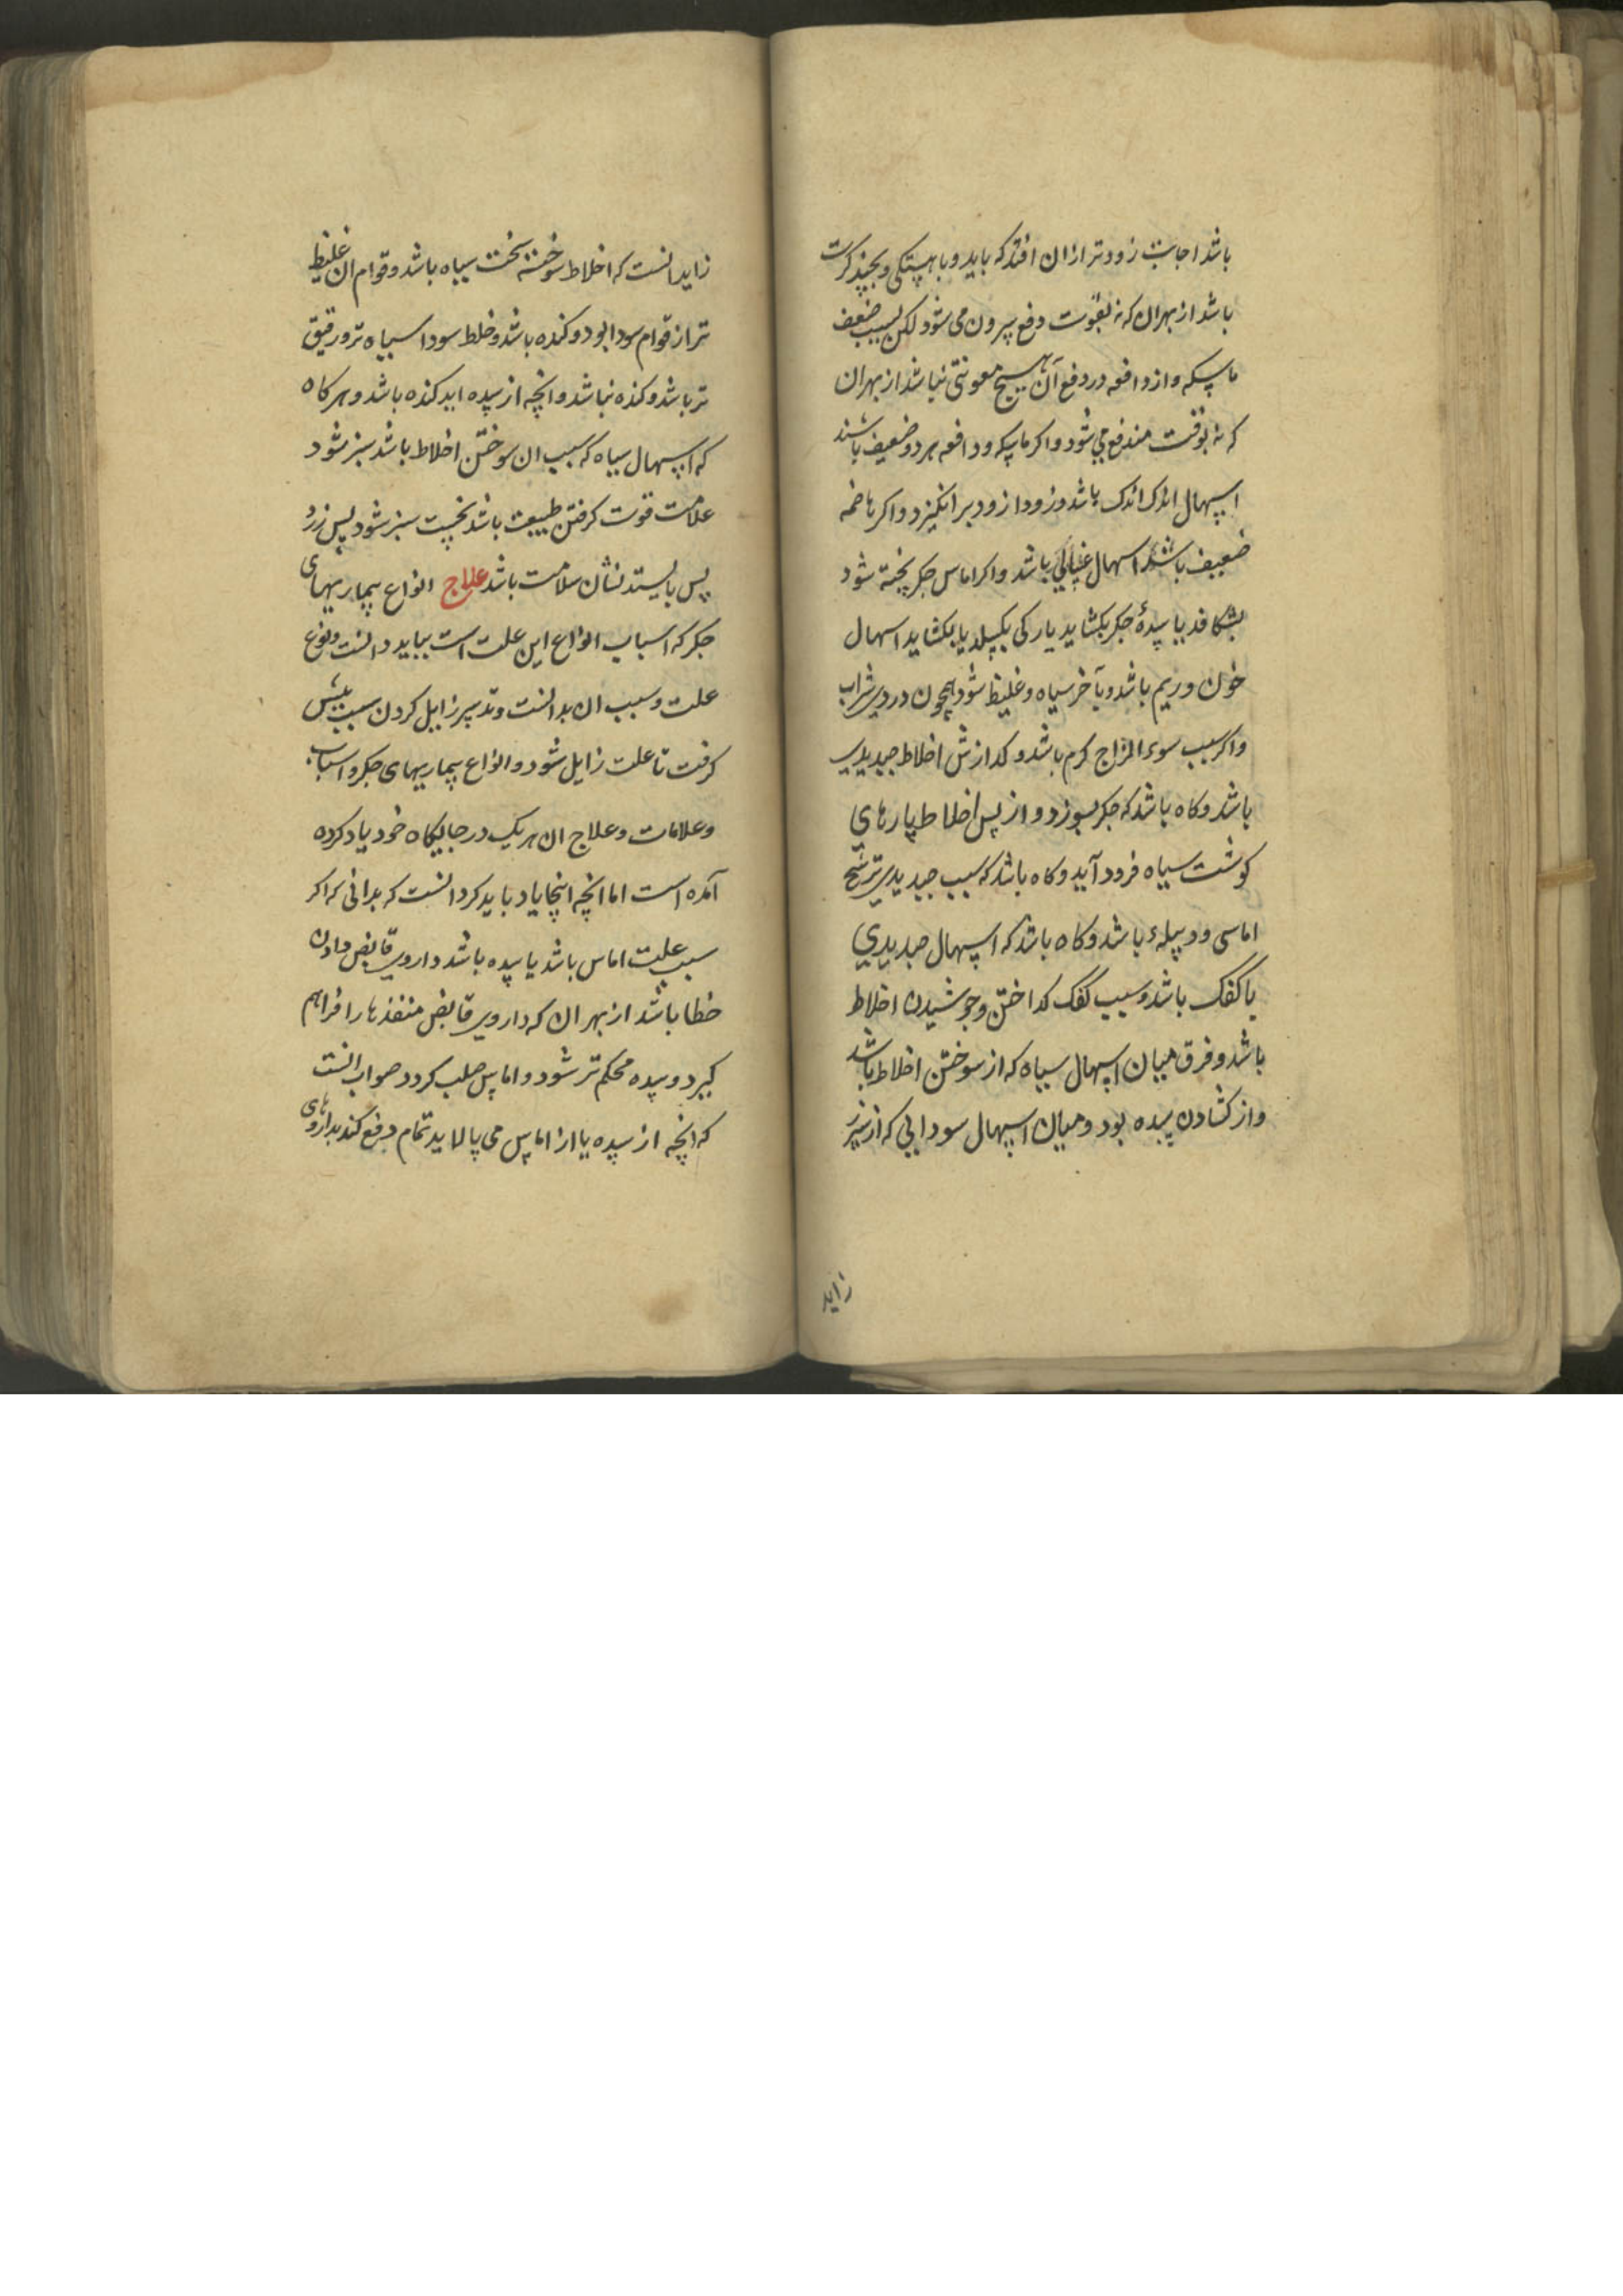 باشد اجابت زودتر از ان افتد که باید و باهستکی و بچند کرت
باشد از بهران که نه بقوت دفع بیرون می شود لکن بسبب ضعف
ماسکه و از دافعه در دفع آن هیچ معونتی نباشد از بهران
که نه بوقت مندفع می شود و اکر ماسکه و دافعه هر دو ضعیف باشند
اسهال اندک اندک باشد و زودا زود برانکیزد و اکر هاضمه
ضعیف باشد اسهال غسالی باشد و اکر اماس جکر پخته شود
بشکافد یا سدۀ جکر بکشاید یا رکی بکسلد یا بکشاید اسهال
خون و ریم باشد و بآخر سیاه و غلیظ شود همچون دردی شراب
و اکر سبب سوء المزاج کرم باشد و کدازش اخلاط صدیدی
باشد و کاه باشد که جکر بسوزد و از پس اخلاط پارهای
کوشت سیاه فرود آید و کاه باشد که سبب صدیدی ترشح
اماسی و دبیلهٔ باشد و کاه باشد که اسهال صدیدی
با کفک باشد و سبب کفک کداختن و جوشیدن اخلاط
باشد و فرق میان اسهال سیاه که از سوختن اخلاط باشد
و از کشادن سده بود و میان اسهال سودایی که از سپرز
زاید
زاید انست که اخلاط سوخته سخت سیاه باشد و قوام ان غلیظ
تر از قوام سودا بود و کنده باشد و خلط سودا سیاه تر و رقیق
تر باشد و کنده نباشد و انچه از سده اید کنده باشد و هر کاه
که اسهال سیاه که سبب ان سوختن اخلاط باشد سبز شود
علامت قوت کرفتن طبیعت باشد نخست سبز شود پس زرد
پس بایستد نشان سلامت باشد علاج انواع بیماریهای
جکر که اسباب انواع این علت است بباید دانست و نوع
علت و سبب ان بدانست و تدبیر زایل کردن سبب پیش
کرفت تا علت زایل شود و انواع بیماریهای جکر و اسباب
و علامات و علاج ان هر یک در جایکاه خود یاد کرده
آمده است اما انچه اینجا یاد باید کرد انست که بدانی که اکر
سبب علت اماس باشد یا سده باشد داروی قابض دادن
خطا باشد از بهر ان که داروی قابض منفذها را فراهم
کیرد و سده محکم تر شود و اماس صلب کردد صواب انست
که انچه از سده یا از اماس می پالاید تمام دفع کند بداروهای